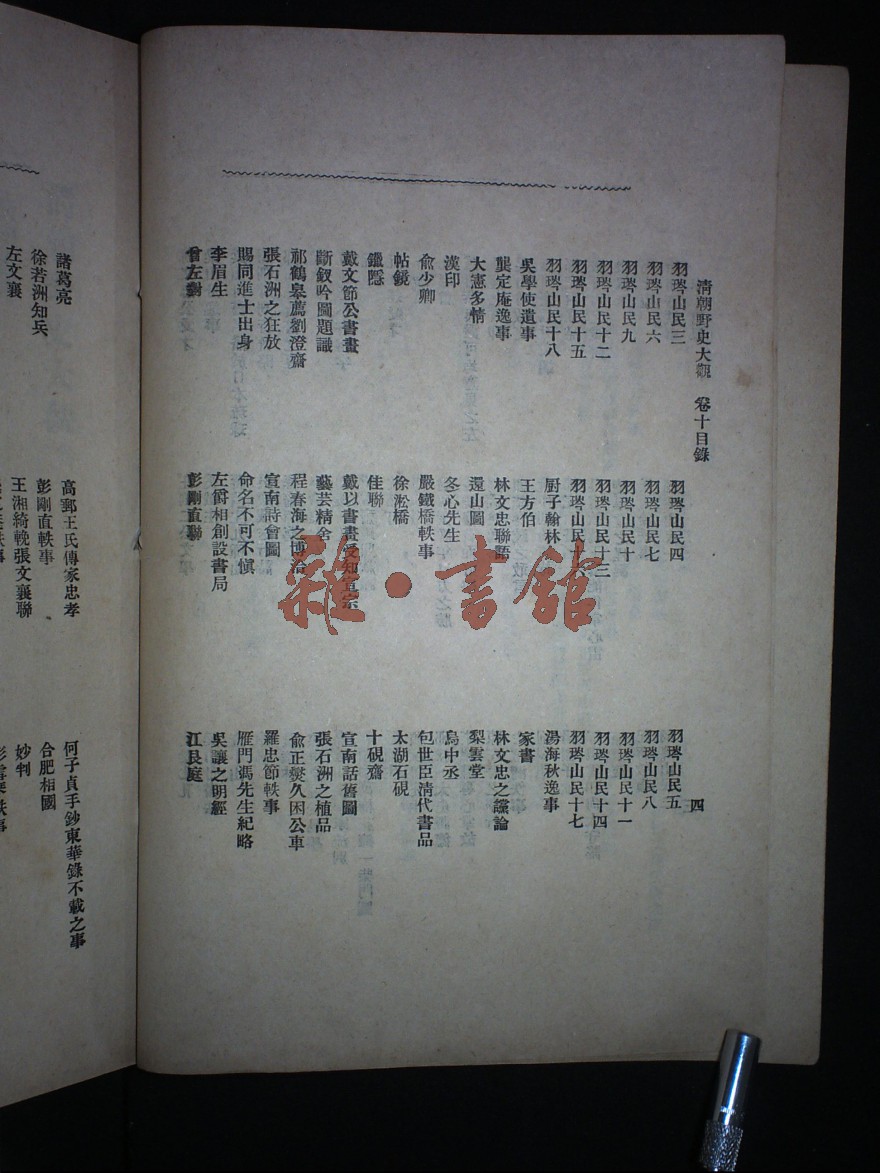 清朝野史大觀 卷十目錄 四
羽琌山民三 羽琌山民四 羽琌山民五
羽琌山民六 羽琌山民七 羽琌山民八
羽琌山民九 羽琌山民十 羽琌山民十一
羽琌山民十二 羽琌山民十三 羽琌山民十四
羽琌山民十五 羽琌山民十六 羽琌山民十七
羽琌山民十八 廚子翰林 湯海秋逸事
吳學使遺事 王方伯 家書
龔定庵逸事 林文忠聯語 林文忠之讜論
大憲多情 還山圖 梨雲堂
漢印 冬心先生 烏中丞
俞少卿 嚴鐵橋軼事 包世臣清代書品
帖鏡 徐淞橋 太湖石硯
鐵隱 佳聯 十硯齋
戴文節公書畫 戴以書畫受知宣宗 宣南話舊圖
斷釵吟圖題識 藝芸精舍 張石洲之植品
祁鶴皋薦劉澄齋 程春海之博洽 俞正燮久困公車
張石洲之狂放 宣南詩會圖 羅忠節軼事
賜同進士出身 命名不可不慎 雁門馮先生紀略
李眉生 左爵相創設書局 吳讓之明經
曾左對 彭剛直聯 江艮庭
諸葛亮 高郵王氏傳家忠孝 何子貞手鈔東華錄不載之事
徐若洲知兵 彭剛直軼事 合肥相國
左文襄 王湘綺輓張文襄聯 妙判
雜·書館